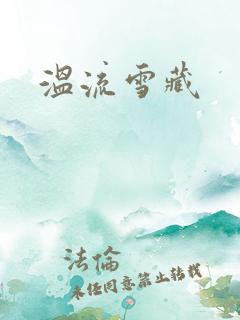 溫流雪藏
法倫
未经同意禁止转载